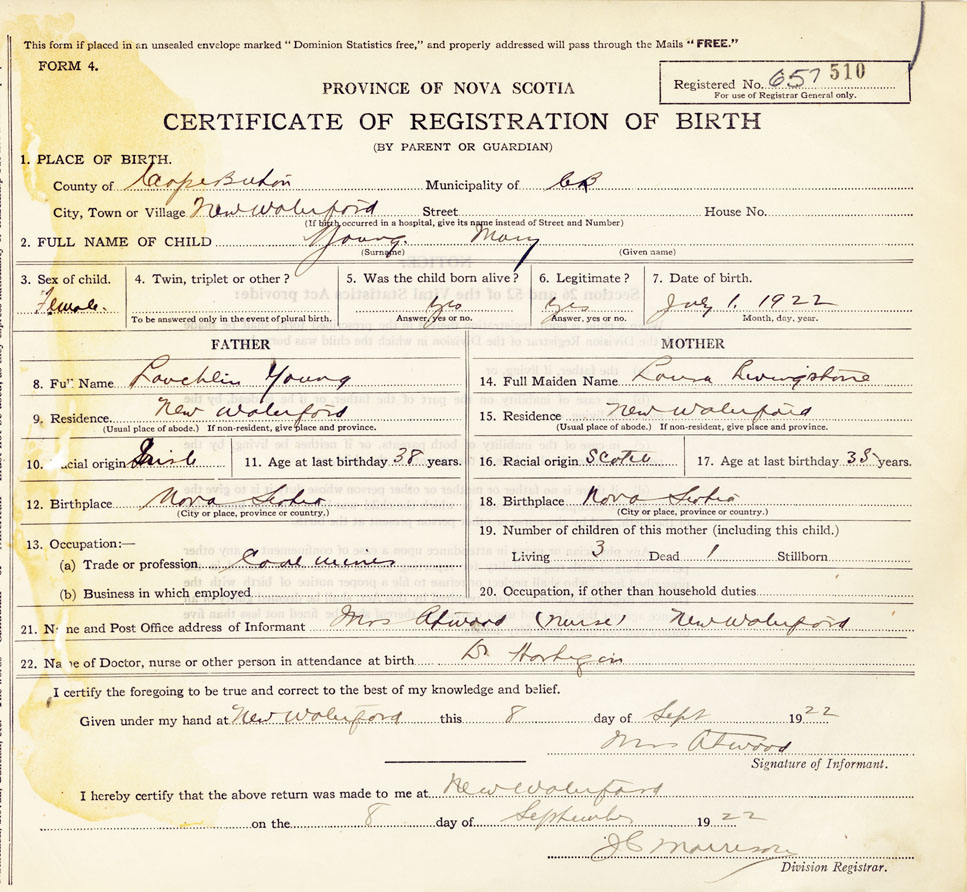 This form if placed in an unsealed envelope marked "Dominion Statistics free," and properly addressed will pass through the Mails "FREE."
FORM 4.
Registered No. 657 510
For use of Registrar General only.
PROVINCE OF NOVA SCOTIA
CERTIFICATE OF REGISTRATION OF BIRTH
(BY PARENT OR GUARDIAN)
1. PLACE OF BIRTH.
County of Cape Breton Municipality of CB
City, Town or Village New Waterford Street House No.
(If birth occurred in a hospital, give its name instead of Street and Number)
2. FULL NAME OF CHILD Young. Mary
(Surname) (Given name)
3. Sex of child. 4. Twin, triplet or other? 5. Was the child born alive? 6. Legitimate? 7. Date of birth.
Female. yes yes July 1. 1922
To be answered only in the event of plural birth. Answer, yes or no. Answer, yes or no. Month, day, year.
FATHER
8. Full Name Lauchlin Young
9. Residence New Waterford
(Usual place of abode.) If non-resident, give place and province.
10. Racial origin Irish 11. Age at last birthday 38 years.
12. Birthplace Nova Scotia
(City or place, province or country.)
13. Occupation:—
(a) Trade or profession Coal miner
(b) Business in which employed
MOTHER
14. Full Maiden Name Louisa Livingstone
15. Residence New Waterford
(Usual place of abode.) If non-resident, give place and province.
16. Racial origin Scotch 17. Age at last birthday 33 years.
18. Birthplace Nova Scotia
(City or place, province or country.)
19. Number of children of this mother (including this child.)
Living 3 Dead 1 Stillborn
20. Occupation, if other than household duties
21. Name and Post Office address of Informant Mrs Atwood (nurse) New Waterford
22. Name of Doctor, nurse or other person in attendance at birth Dr Hartigan
I certify the foregoing to be true and correct to the best of my knowledge and belief.
Given under my hand at New Waterford this 8 day of Sept 1922
Mrs Atwood
Signature of Informant.
I hereby certify that the above return was made to me at New Waterford
on the 8 day of September 1922
J C Morrison
Division Registrar.